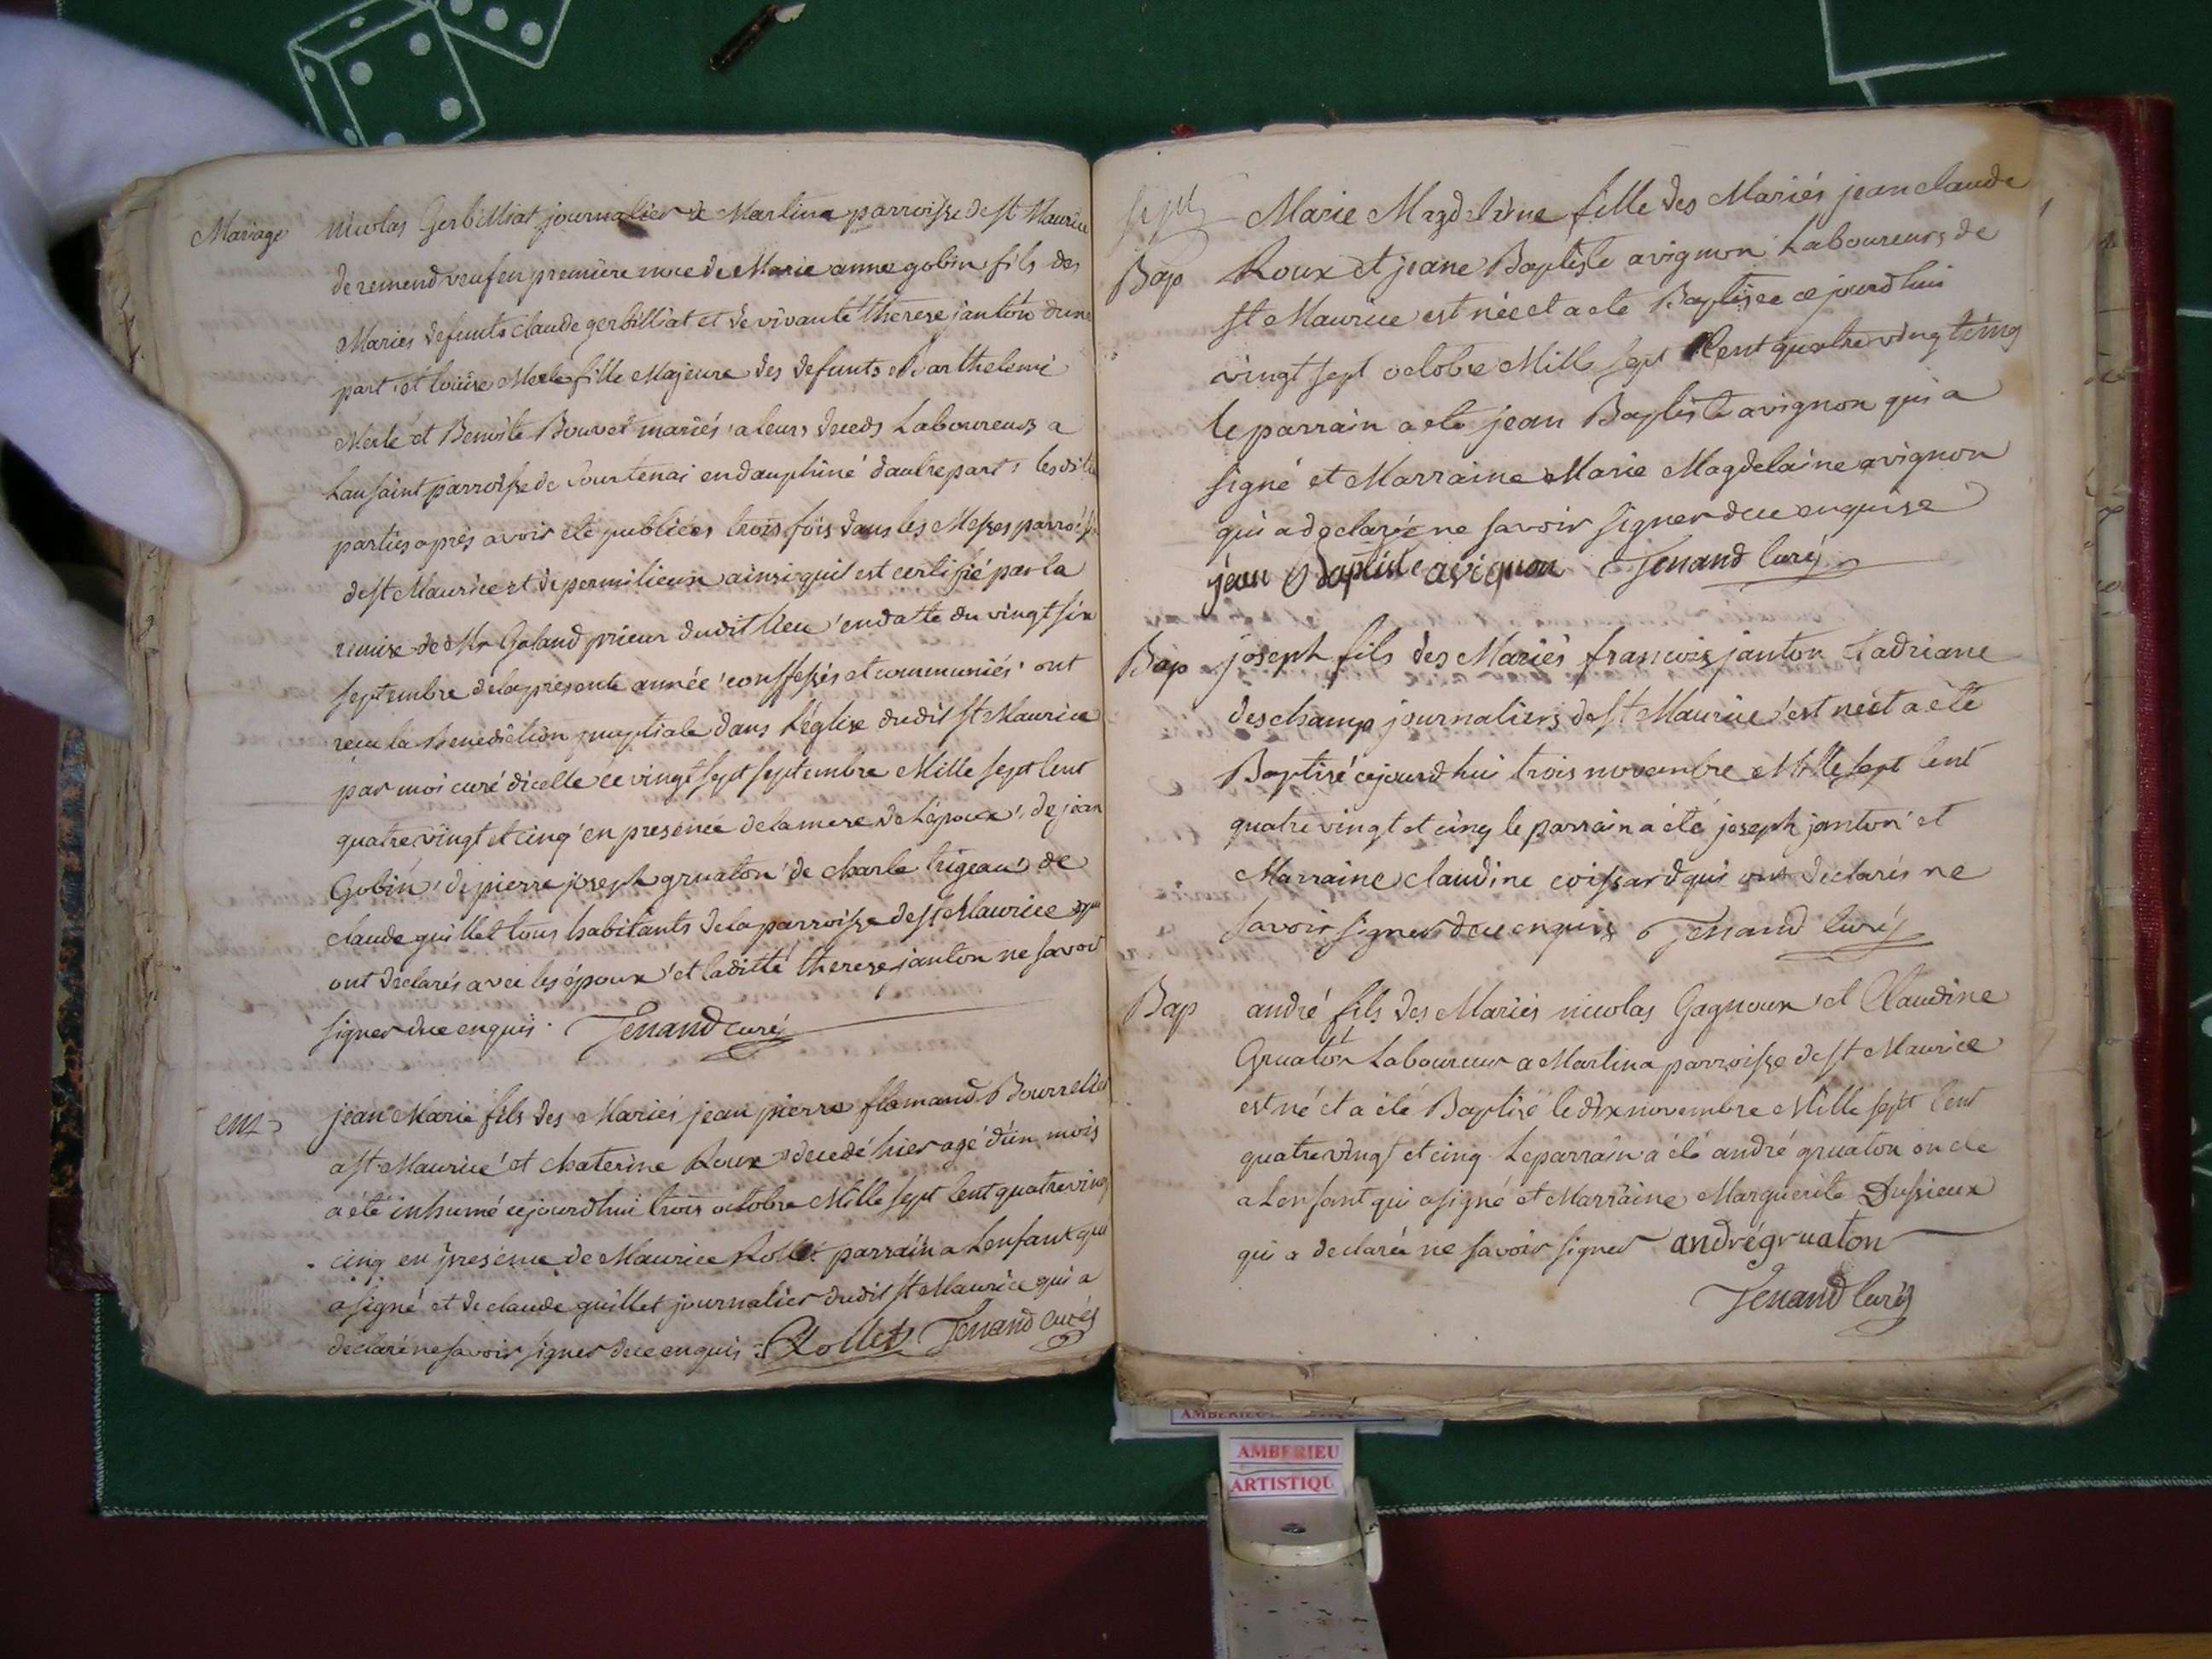 Mariage nicolas Gerbilliat journalier a Martina parroisse de st Maurice
de remend veuf en premiere noce de Marie anne gobin fils des
Mariés defunts claude gerbilliat et de vivante therese janton dune
part, et louise Merle fille Majeure des defunts Barthelemi
Merle et Benoite Bouvet mariés a leurs deceds Laboureurs a
Lansaint parroisse de Courtenai en dauphiné dautre part, lesdites
parties apres avoir été publiées trois fois dans les Messes parroiss
de st Maurice et de permilieux ainsi quil est certifié par la
remise de Mr Galand prieur dudit lieu en datte du vingt six
septembre de la presente année conffessés et communiés ont
receu la Benediction nuptiale dans L'église dudit st Maurice
par moi curé dicelle ce vingt sept septembre Mille sept Cent
quatre vingt et cinq en presence de la mere de L'epoux, de jean
Gobin, de pierre joseph gruaton de charle trigeau de
claude guillet tous habitants de la parroisse de st Maurice qui
ont declarés avec les époux et laditte therese janton ne savoir
signer de ce enquis. Tenand curé
jean Marie fils des Mariés jean pierre flamand Bourrelier
a st Maurice et chaterine Roux decedé hier agé d'un mois
a été inhumé cejourdhui trois octobre Mille sept Cent quatre ving
cinq en presence de Maurice Rollet parrain a Lenfant qui
a signé et de claude guillet journalier dudit st Maurice qui a
declaré ne savoir signer de ce enquis. Rollet Tenand curé
sept
Marie Magdelaine fille des Mariés jean claude
Bap Roux et jeane Baptiste avignon Laboureurs de
st Maurice est née et a ete Baptisee ce jourdhui
vingt sept octobre Mille sept Cent quatre vingt cinq
le parrain a ete jean Baptiste avignon qui a
signé et Marraine Marie Magdelaine avignon
qui a declarée ne savoir signer de ce enquise
jean Baptiste avignon Tenand Curé
Bap joseph fils des Mariés francois janton et adriane
deschamp journaliers de st Maurice est né et a été
Baptisé cejourdhui trois novembre Mille sept Cent
quatre vingt et cinq le parrain a été joseph janton et
Marraine claudine coissard qui ont declarés ne
savoir signer de ce enquis Tenand Curé
Bap andré fils des Mariés nicolas Gagnoux et Claudine
Gruaton Laboureur a Martina parroisse de st Maurice
est né et a été Baptisé le dix novembre Mille sept Cent
quatre vingt et cinq Le parrain a été andré gruaton oncle
a Lenfant qui a signé et Marraine Marguerite Dussieux
qui a declarée ne savoir signer andrégruaton
Tenand Curé
AMBERIEU
ARTISTIQU